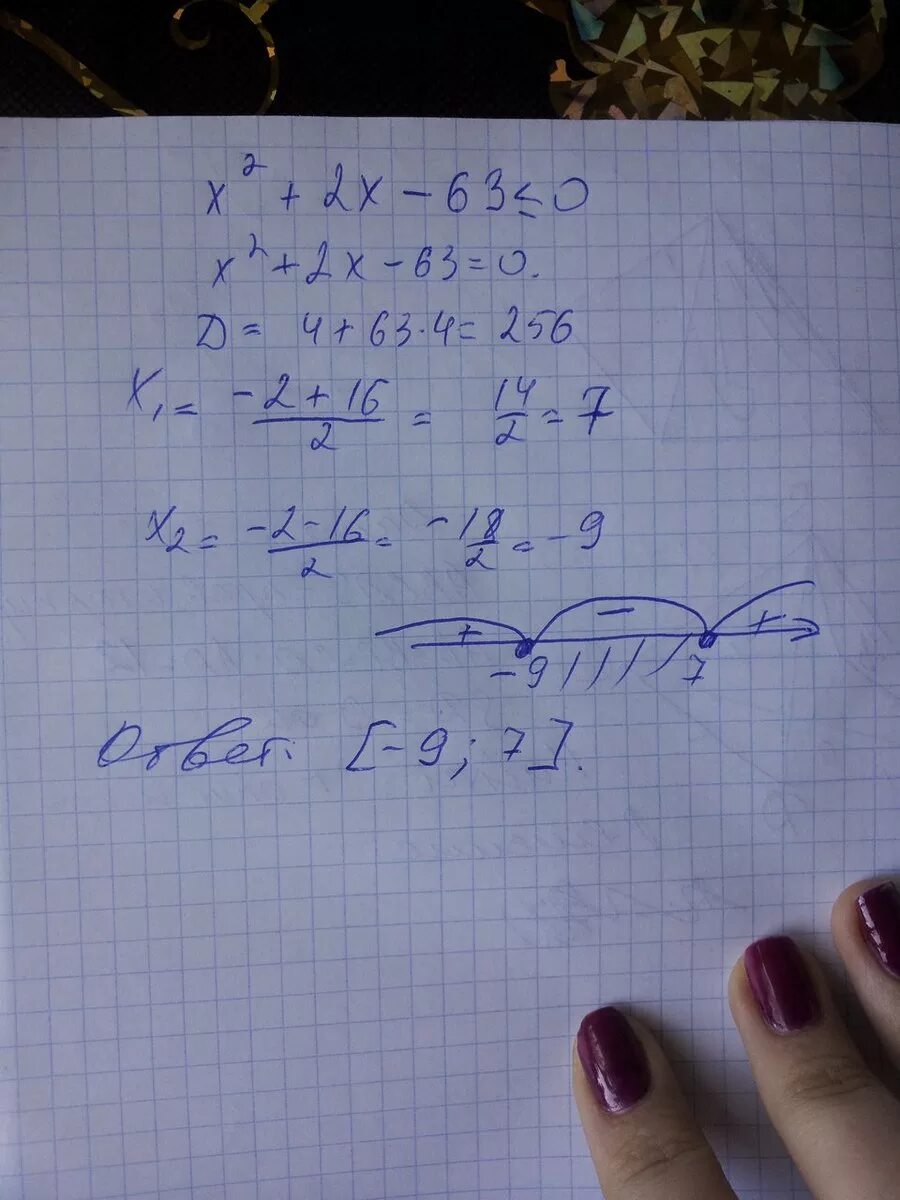 x² + 2x - 63 ≤ 0
x² + 2x - 63 = 0.
D = 4 + 63·4 = 256
X₁ = (-2 + 16)/2 = 14/2 = 7
X₂ = (-2 - 16)/2 = -18/2 = -9
+ - +
-9 7
Ответ. [-9; 7].